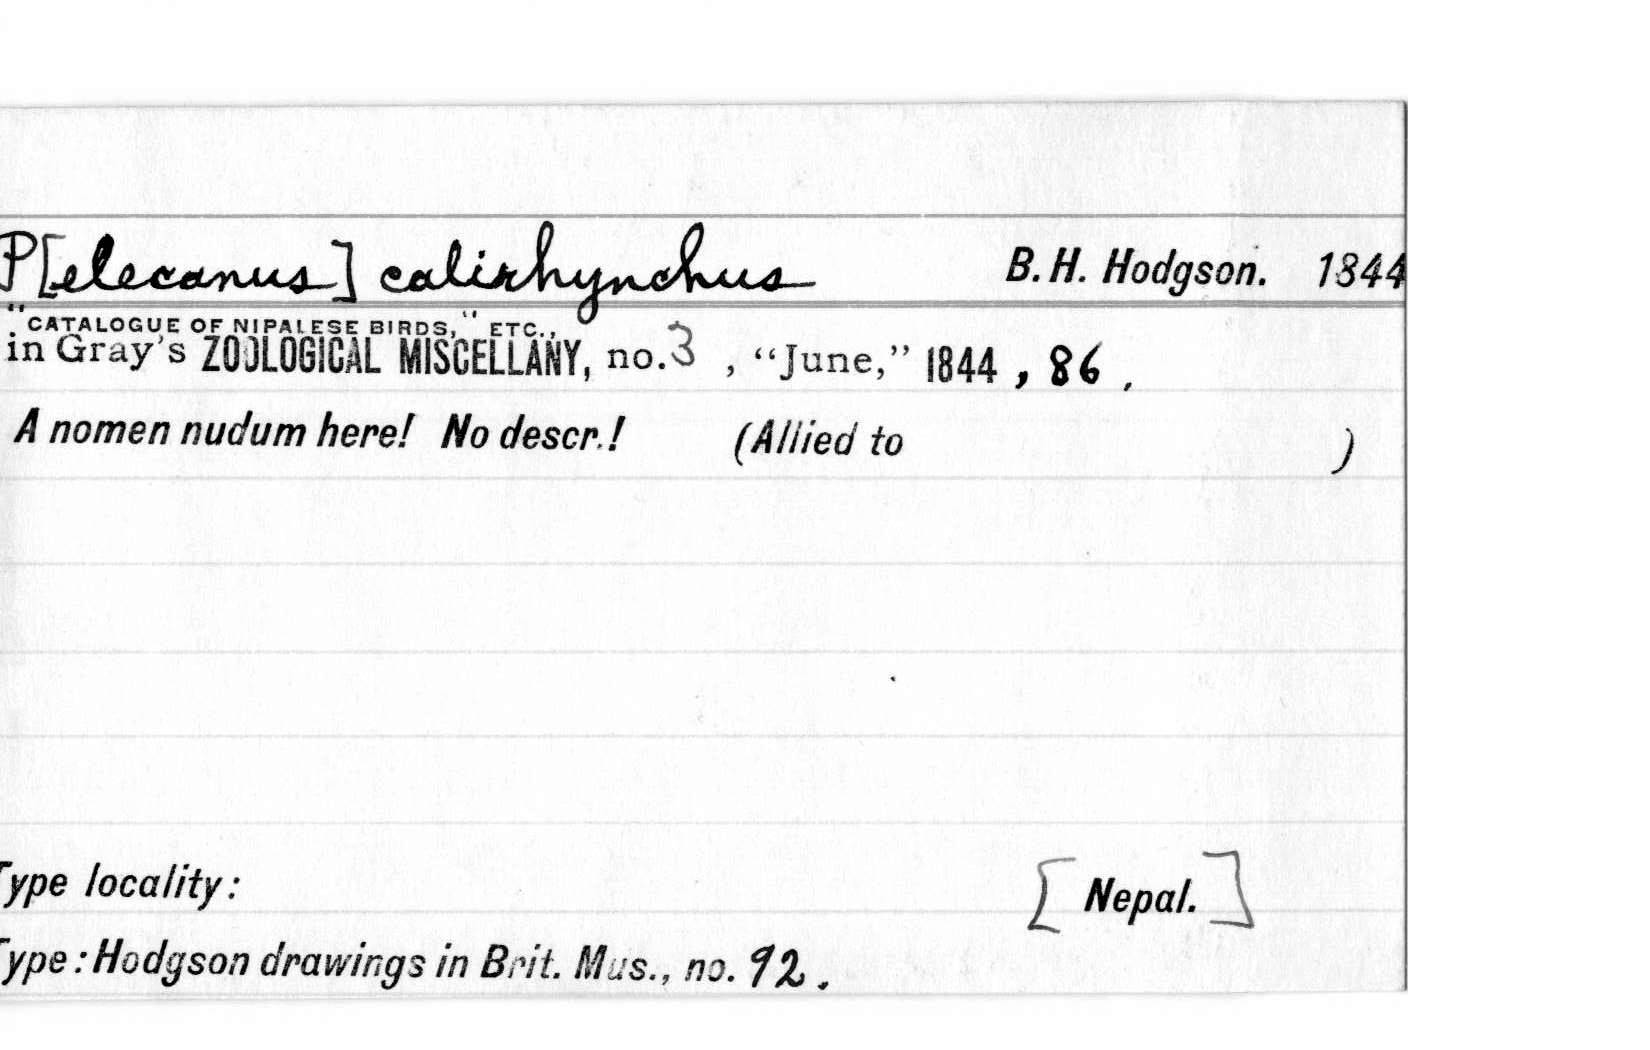 P[elecanus] calirhynchus B. H. Hodgson. 1844
"CATALOGUE OF NIPALESE BIRDS," ETC.,
in Gray's ZOOLOGICAL MISCELLANY, no. 3, "June," 1844, 86.
A nomen nudum here! No descr.! (Allied to )
Type locality: [Nepal.]
Type: Hodgson drawings in Brit. Mus., no. 92.